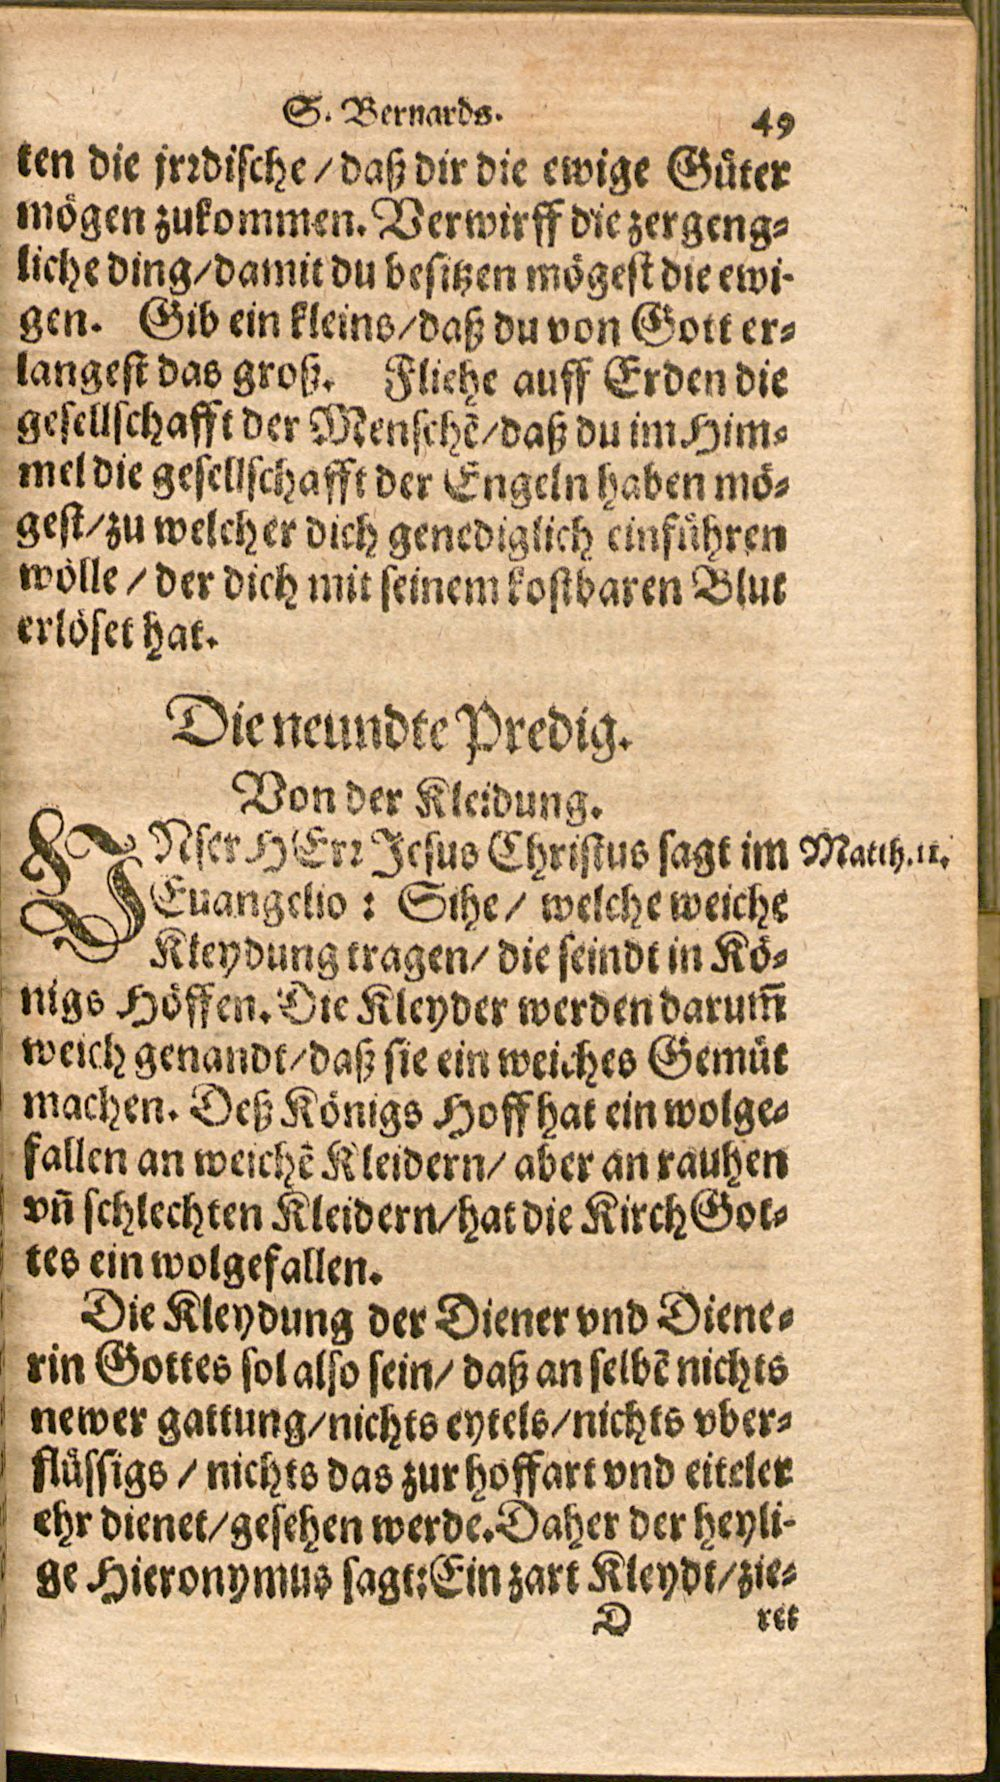 S. Bernards. 49
ten die jrꝛdische / daß dir die ewige Güter
mögen zukommen. Verwirff die zergeng⸗
liche ding/damit du besitzen mögest die ewi-
gen. Gib ein kleins/daß du von Gott er⸗
langest das groß. Fliehe auff Erden die
gesellschafft der Menschẽ/daß du im Him⸗
mel die gesellschafft der Engeln haben mö⸗
gest/zu welcher dich genediglich einführen
wölle / der dich mit seinem kostbaren Blut
erlöset hat.
Die neundte Predig.
Von der Kleidung.
VNser HErꝛ Jesus Christus sagt im Matth.11.
Euangelio : Sihe/ welche weiche
Kleydung tragen/ die seindt in Kö⸗
nigs Höffen. Die Kleyder werden darum̃
weich genandt/daß sie ein weiches Gemüt
machen. Deß Königs Hoff hat ein wolge⸗
fallen an weichẽ Kleidern/ aber an rauhen
vñ schlechten Kleidern/hat die Kirch Got⸗
tes ein wolgefallen.
Die Kleydung der Diener vnd Diene⸗
rin Gottes sol also sein/ daß an selbẽ nichts
newer gattung/nichts eytels/nichts vber⸗
flüssigs / nichts das zur hoffart vnd eiteler
ehr dienet/gesehen werde.Daher der heyli-
ge Hieronymus sagt:Ein zart Kleydt/zie⸗
D ret